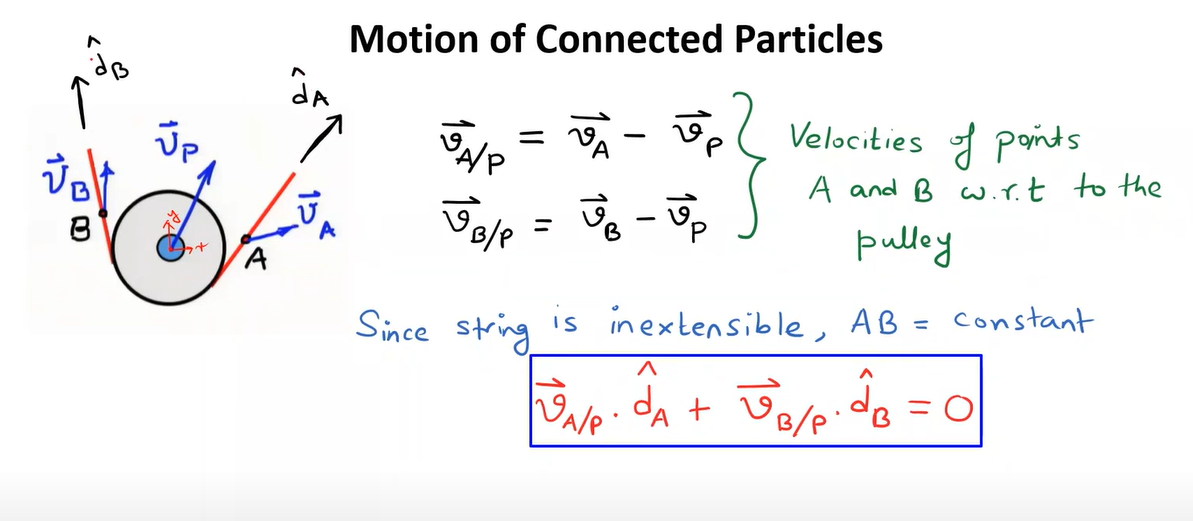 Motion of Connected Particles
d̂_B
d̂_A
v⃗_P
v⃗_B
v⃗_A
B
A
y
x
v⃗_A/P = v⃗_A − v⃗_P
v⃗_B/P = v⃗_B − v⃗_P
Velocities of points
A and B w.r.t to the
pulley
Since string is inextensible, AB = constant
v⃗_A/P · d̂_A + v⃗_B/P · d̂_B = 0